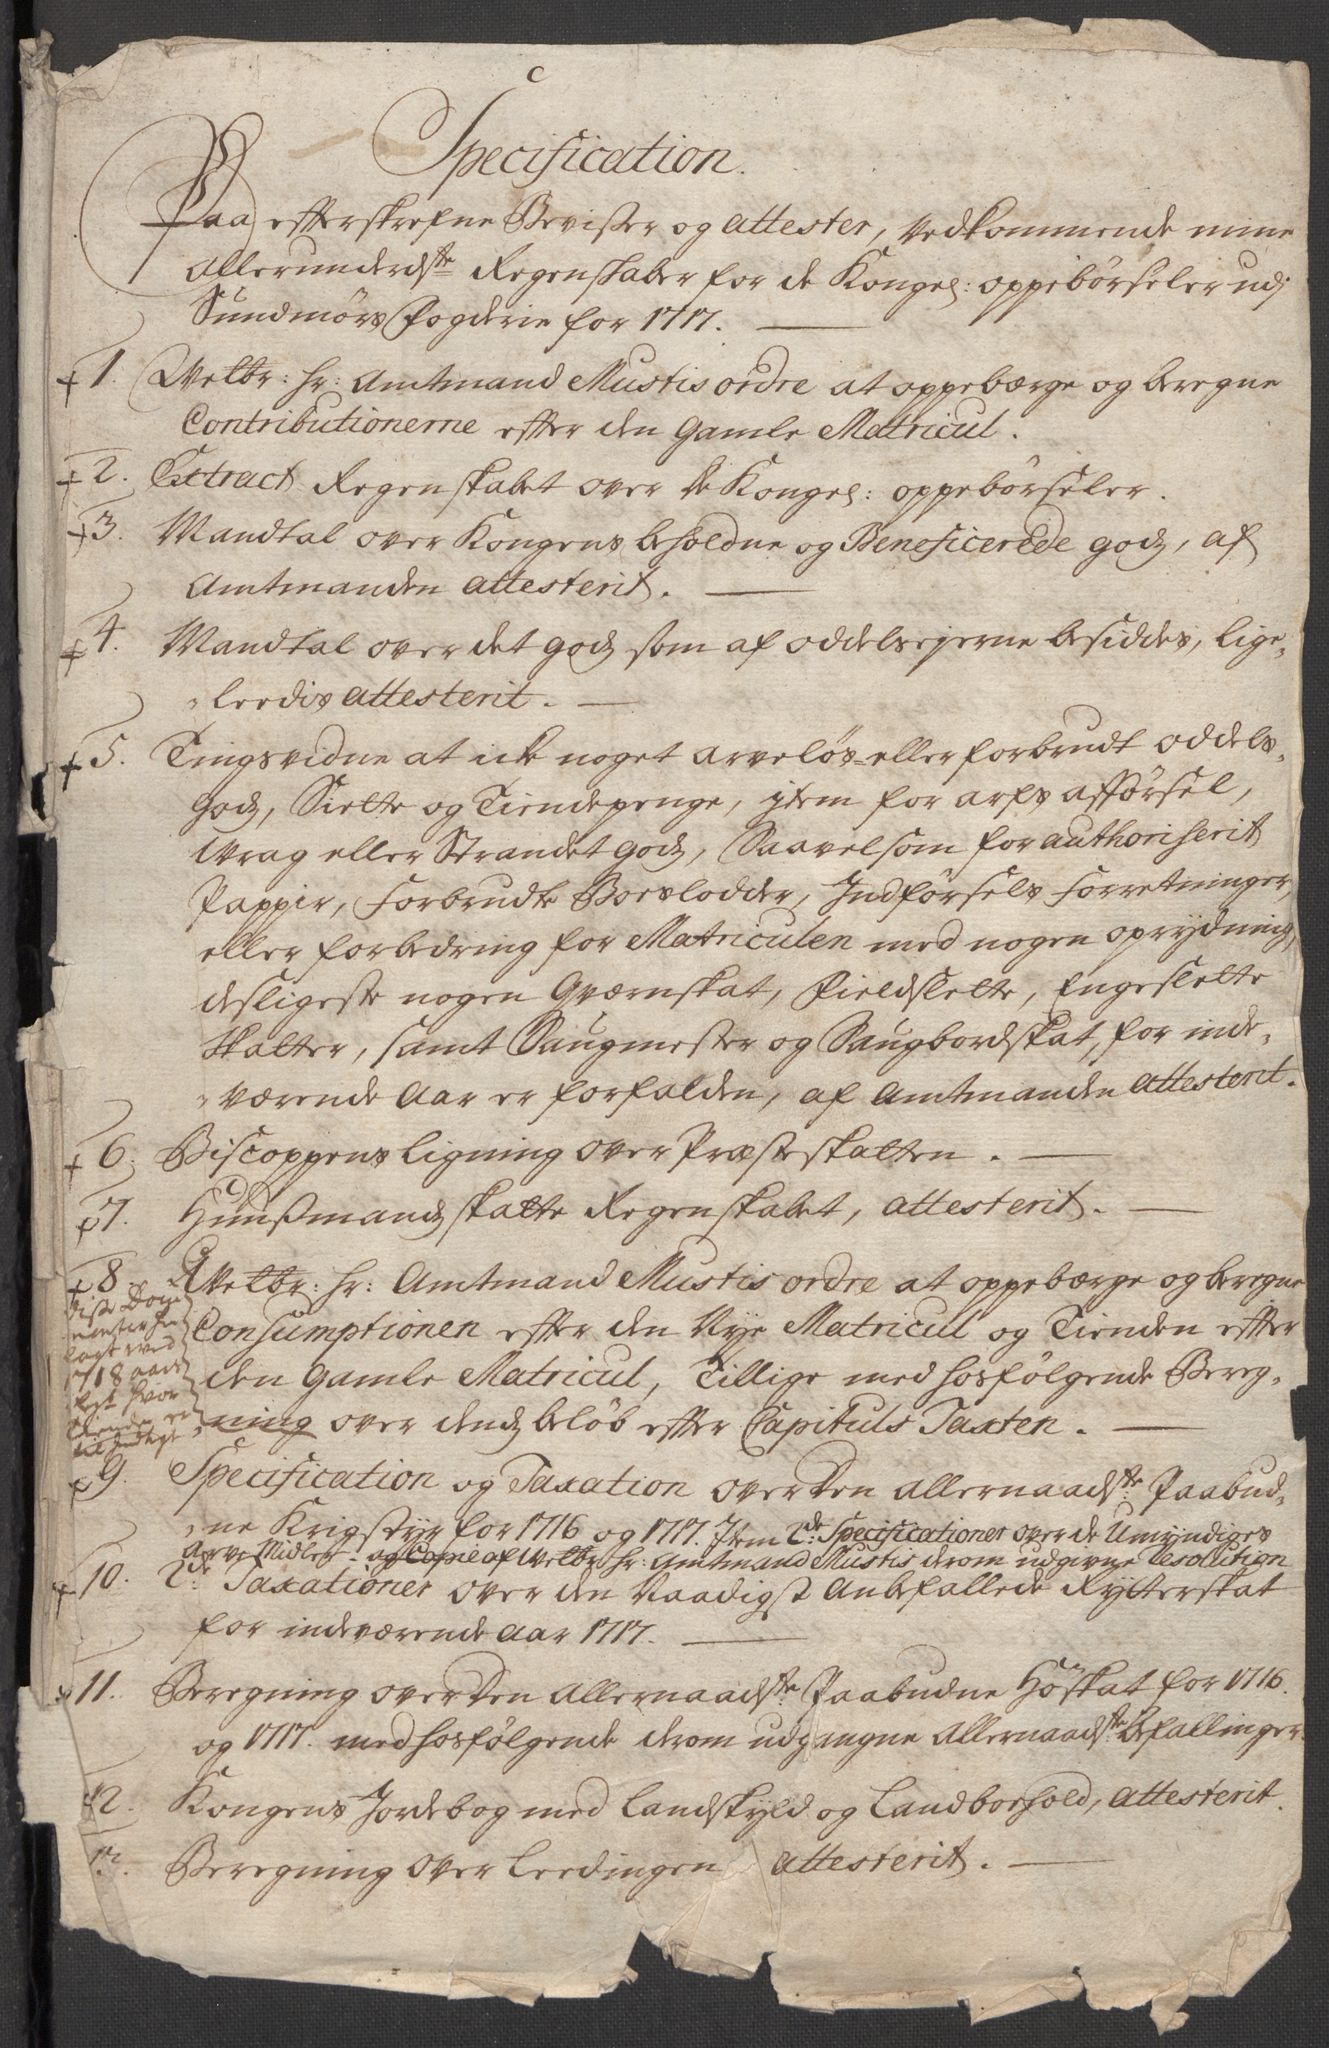 Specification.
Paa efterskrefne Bevißer og attester, Vedkommende mine
Allerunderdste Regenskaber for de Kongel: oppebörseler udj
Sundmörs Fogderie for 1717.
1. Welbr: hr: Amtmand Mustis ordre at oppebærge og beregne
Contributionerne efter den gamle Matricul.
2. Extract Regenskabet over de Kongel: oppebörseler.
3. Mandtal over Kongens beholdne og Beneficerede godz, af
Amtmanden attesterit.
4. Mandtal over det godz som af oddelsejerne besiddes, lige-
leedis attesterit.
5. Tingsvidne at icke noget arvelös eller forbrudt oddels-
godz, Siette og Tiendepenge, jtem for arfs afförsel,
Wrag eller Strandet godz, Saavelsom for authoriserit
Pappir, Forbrudte Boeslodder, Indförsels Forretninger,
eller forbedring for Matriculen med nogen oprydning,
desligeste nogen Qværnskat, Fieldslette, Engeslette
skatter, samt Saugmester og Saugbordskat, for inde-
værende Aar er forfalden, af Amtmanden attesterit.
6. Biscoppens Ligning over Præsteskatten.
7. Huußmandz skatte Regenskabet, attesterit.
8. Welbr: hr: Amtmand Mustis ordre at oppebærge og beregne
Consumptionen efter den Nye Matricul og Tienden efter
den gamle Matricul, Tillige med hosfölgende Bereg-
ning over dendz belöb efter Capituls Taxten.
diße Docu
menter fre
lagt ved
1718 aars
Regst hvor
til indlagt
9. Specification og Taxation over den allernaadste Paabud-
ne Krigstyr for 1716 og 1717. Item 2de Specificationer over de Umyndiges
Arve Midler - og Copie af Welbr: hr: Amtmand Mustis derom udgivne Resolution
10. 2de Taxationer over den Naadigst Anbefallede Rytterskat
for indeværende Aar 1717.
11. Beregning over den Allernaadste Paabudne Höskat for 1716.
og 1717. med hosfölgende derom udgangne Allernaadste befallinger.
12. Kongens Jordebog med Landskyld og Landboehold, attesterit.
13. Beregning over Leedingen attesterit.